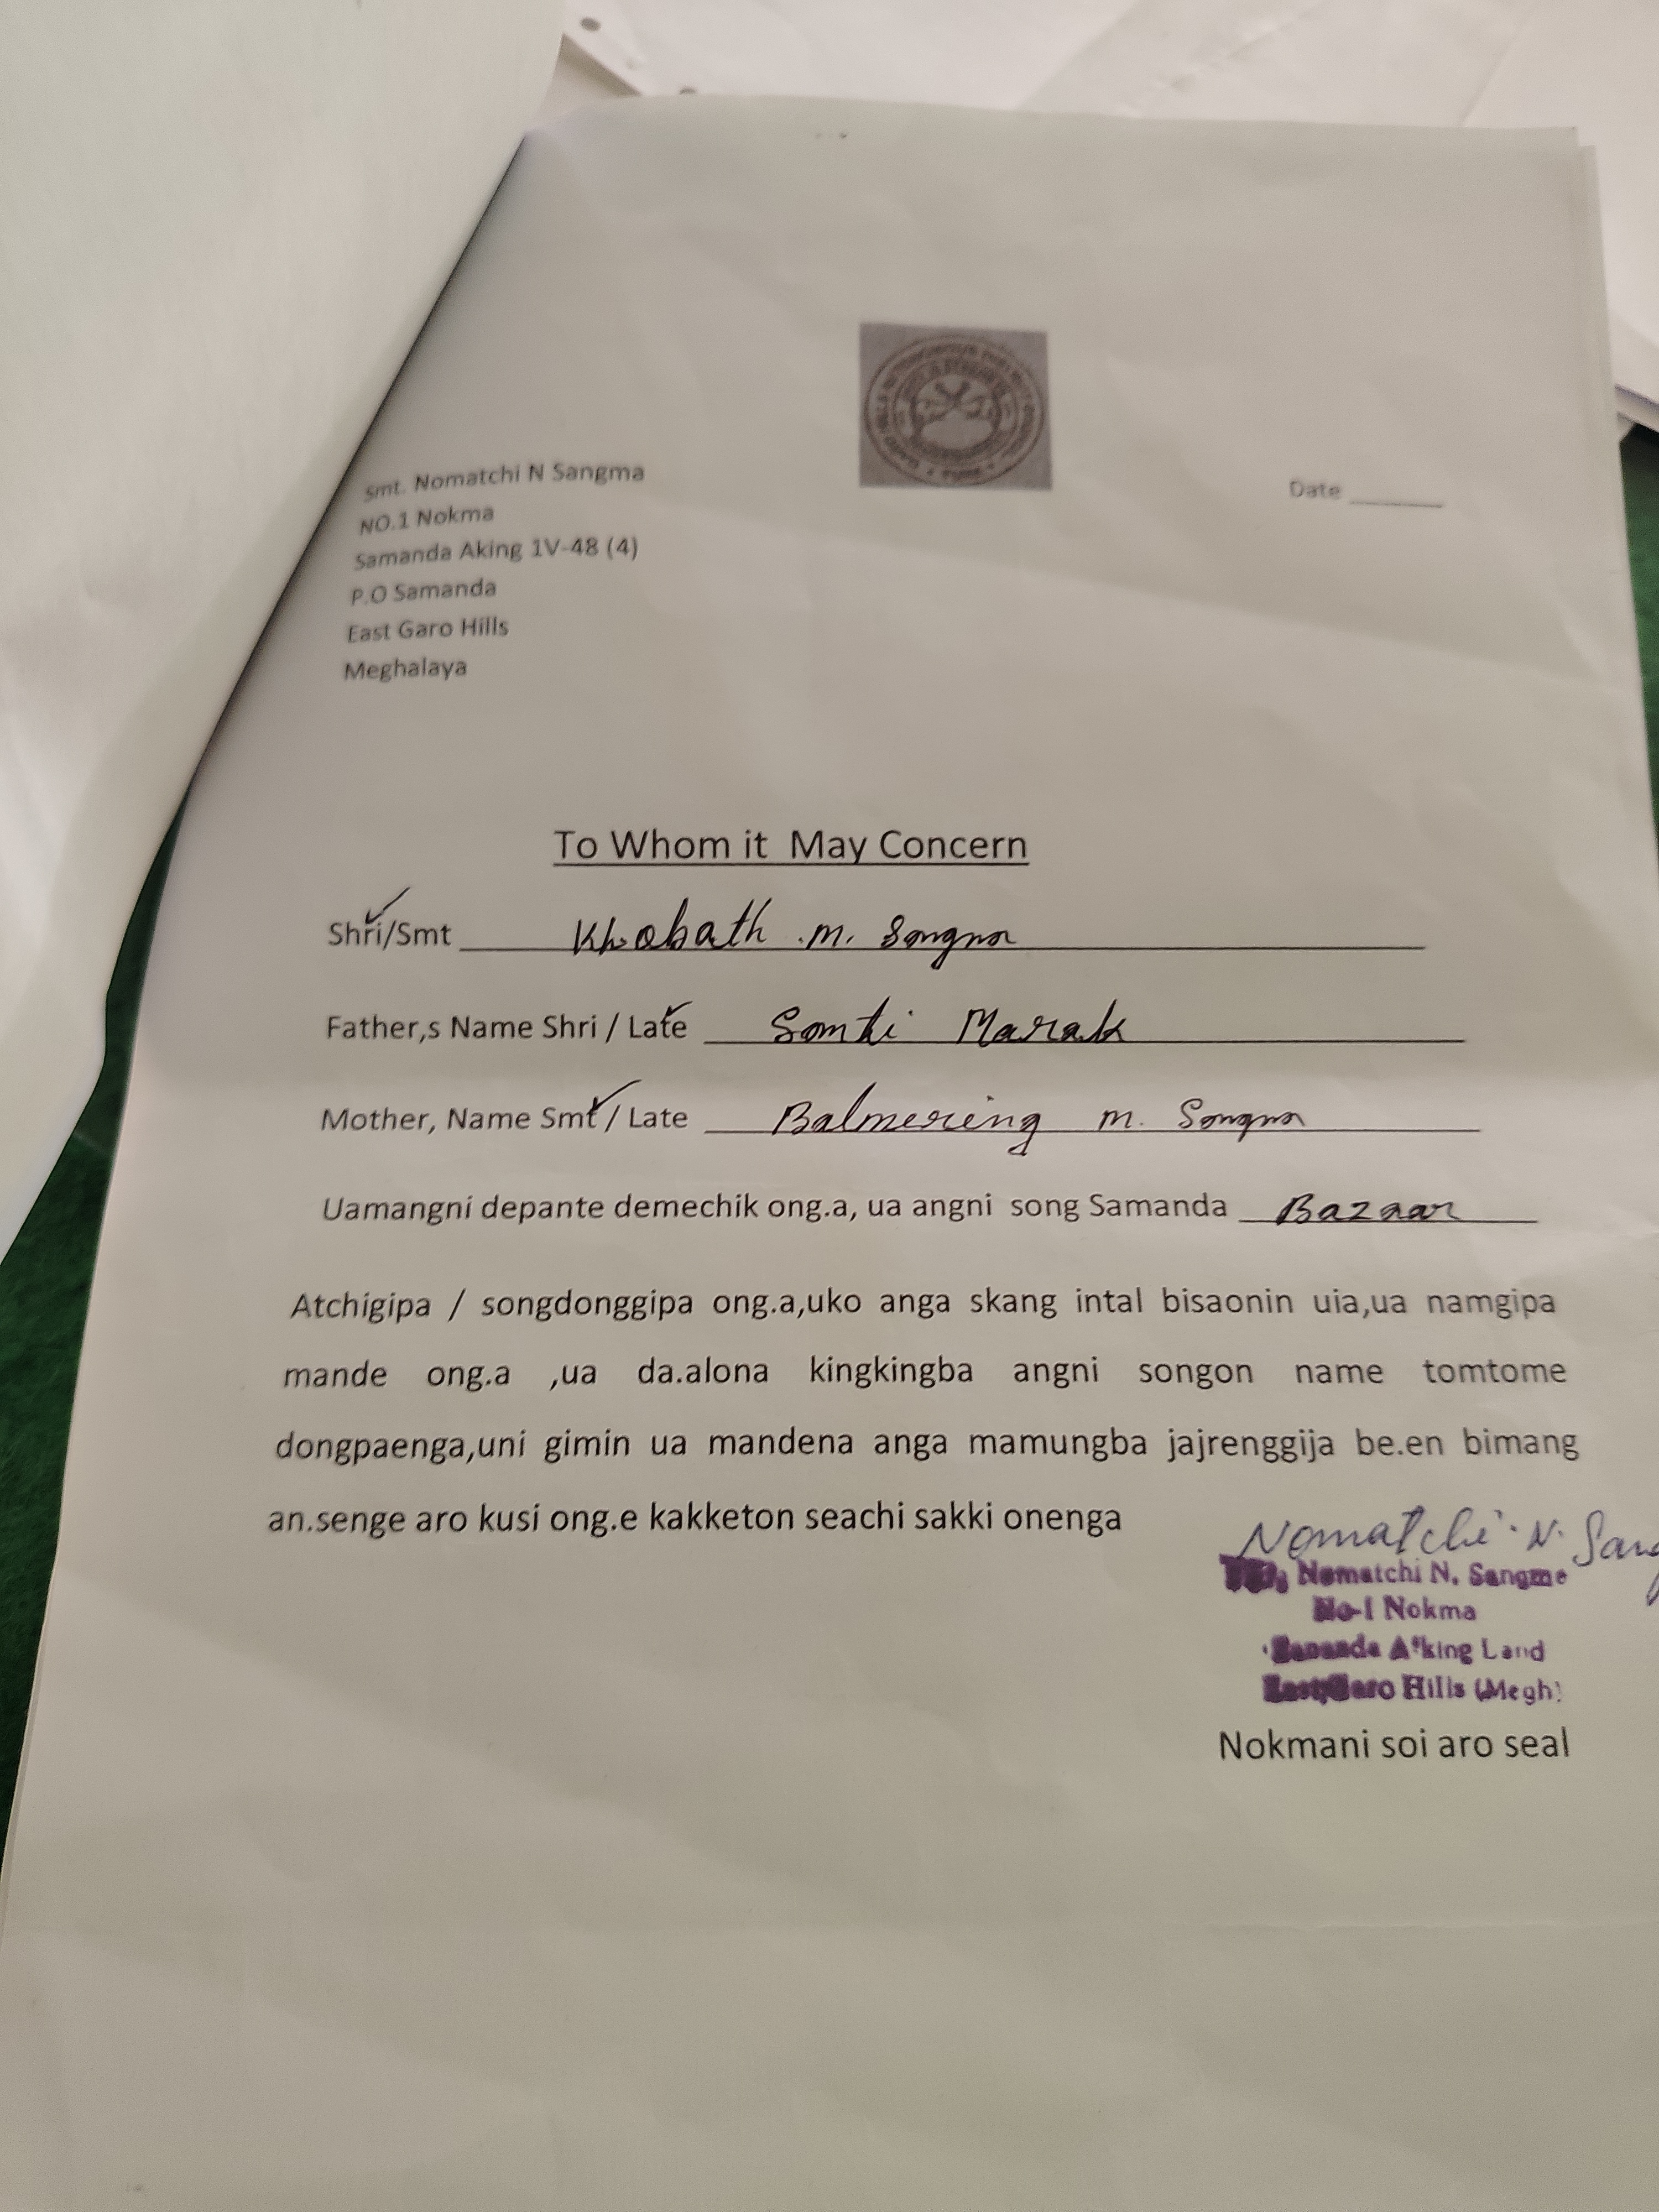 Smt. Nomatchi N Sangma
NO.1 Nokma
Samanda Aking 1V-48 (4)
P.O Samanda
East Garo Hills
Meghalaya
Date
To Whom it May Concern
Shri/Smt Khobath .m. Sangma
Father,s Name Shri / Late Somti Marak
Mother, Name Smt / Late Balmereing m. Sangma
Uamangni depante demechik ong.a, ua angni song Samanda Bazaar
Atchigipa / songdonggipa ong.a,uko anga skang intal bisaonin uia,ua namgipa
mande ong.a ,ua da.alona kingkingba angni songon name tomtome
dongpaenga,uni gimin ua mandena anga mamungba jajrenggija be.en bimang
an.senge aro kusi ong.e kakketon seachi sakki onenga
Nomatchi N. Sang
Nomatchi N. Sangma
No-1 Nokma
Samanda A'king Land
East Garo Hills (Megh)
Nokmani soi aro seal